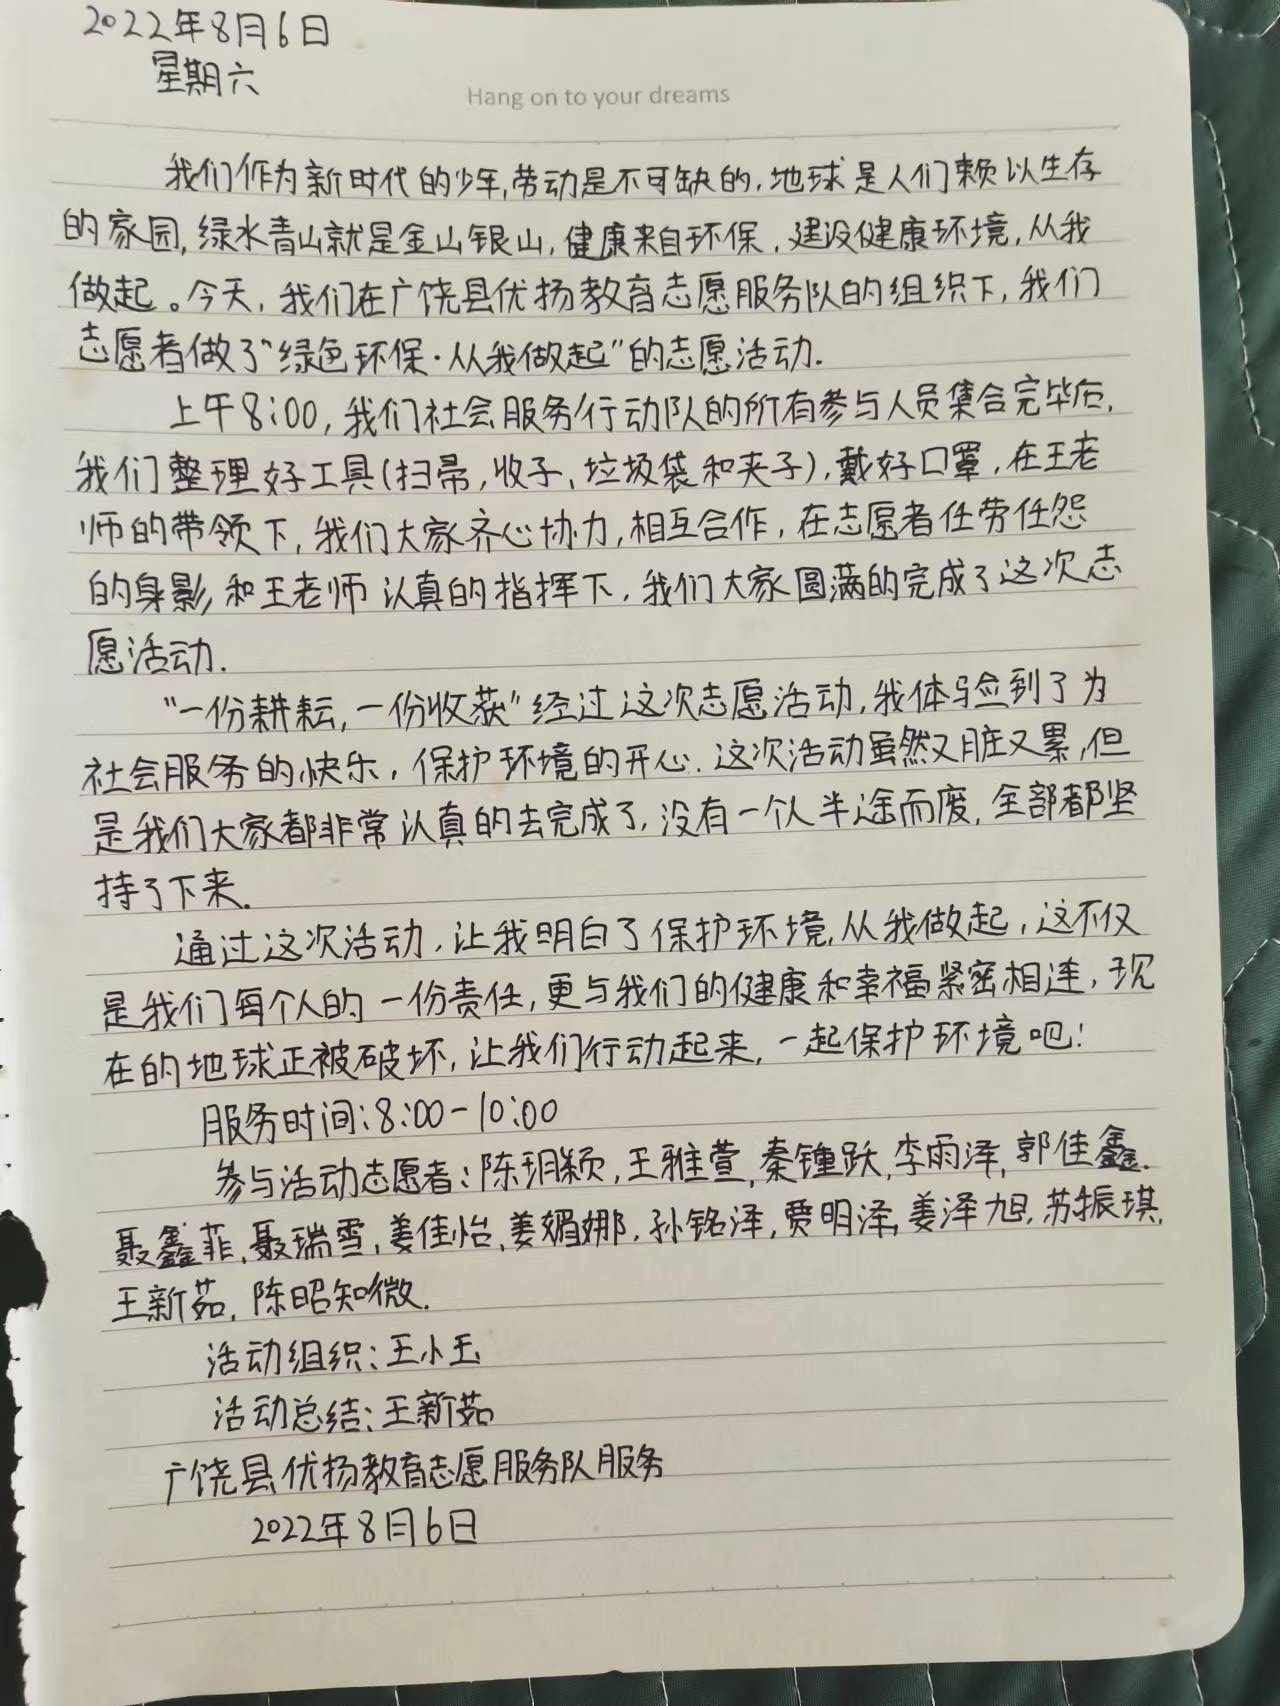 2022年8月6日
星期六
Hang on to your dreams
我们作为新时代的少年,劳动是不可缺的,地球是人们赖以生存
的家园,绿水青山就是金山银山,健康来自环保,建设健康环境,从我
做起。今天,我们在广饶县优扬教育志愿服务队的组织下,我们
志愿者做了“绿色环保·从我做起”的志愿活动.
上午8:00,我们社会服务行动队的所有参与人员集合完毕后,
我们整理好工具(扫帚,收子,垃圾袋和夹子),戴好口罩,在王老
师的带领下,我们大家齐心协力,相互合作,在志愿者任劳任怨
的身影和王老师认真的指挥下,我们大家圆满的完成了这次志
愿活动.
“一份耕耘,一份收获”经过这次志愿活动,我体验到了为
社会服务的快乐,保护环境的开心.这次活动虽然又脏又累,但
是我们大家都非常认真的去完成了,没有一个人半途而废,全部都坚
持了下来.
通过这次活动,让我明白了保护环境,从我做起,这不仅
是我们每个人的一份责任,更与我们的健康和幸福紧密相连,现
在的地球正被破坏,让我们行动起来,一起保护环境吧!
服务时间:8:00-10:00
参与活动志愿者:陈玥颖,王雅萱,秦锺跃,李雨泽,郭佳鑫.
聂鑫菲,聂瑞雪,姜佳怡,姜媚娜,孙铭泽,贾明泽,姜泽旭,苏振琪,
王新茹,陈昭知微.
活动组织:王小玉
活动总结:王新茹
广饶县优扬教育志愿服务队服务
2022年8月6日